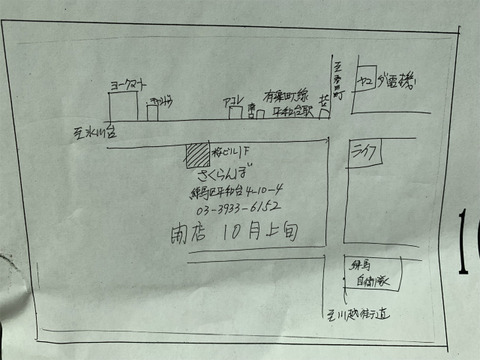 ヨークマート
キャンドゥ
アコレ
有楽町線
平和台駅
ヤマダ電機
至氷川台
桜ビル1F
ライフ
さくらんぼ
練馬区平和台4-10-4
03-3933-6152
開店 10月上旬
練馬
自衛隊
至川越街道
1